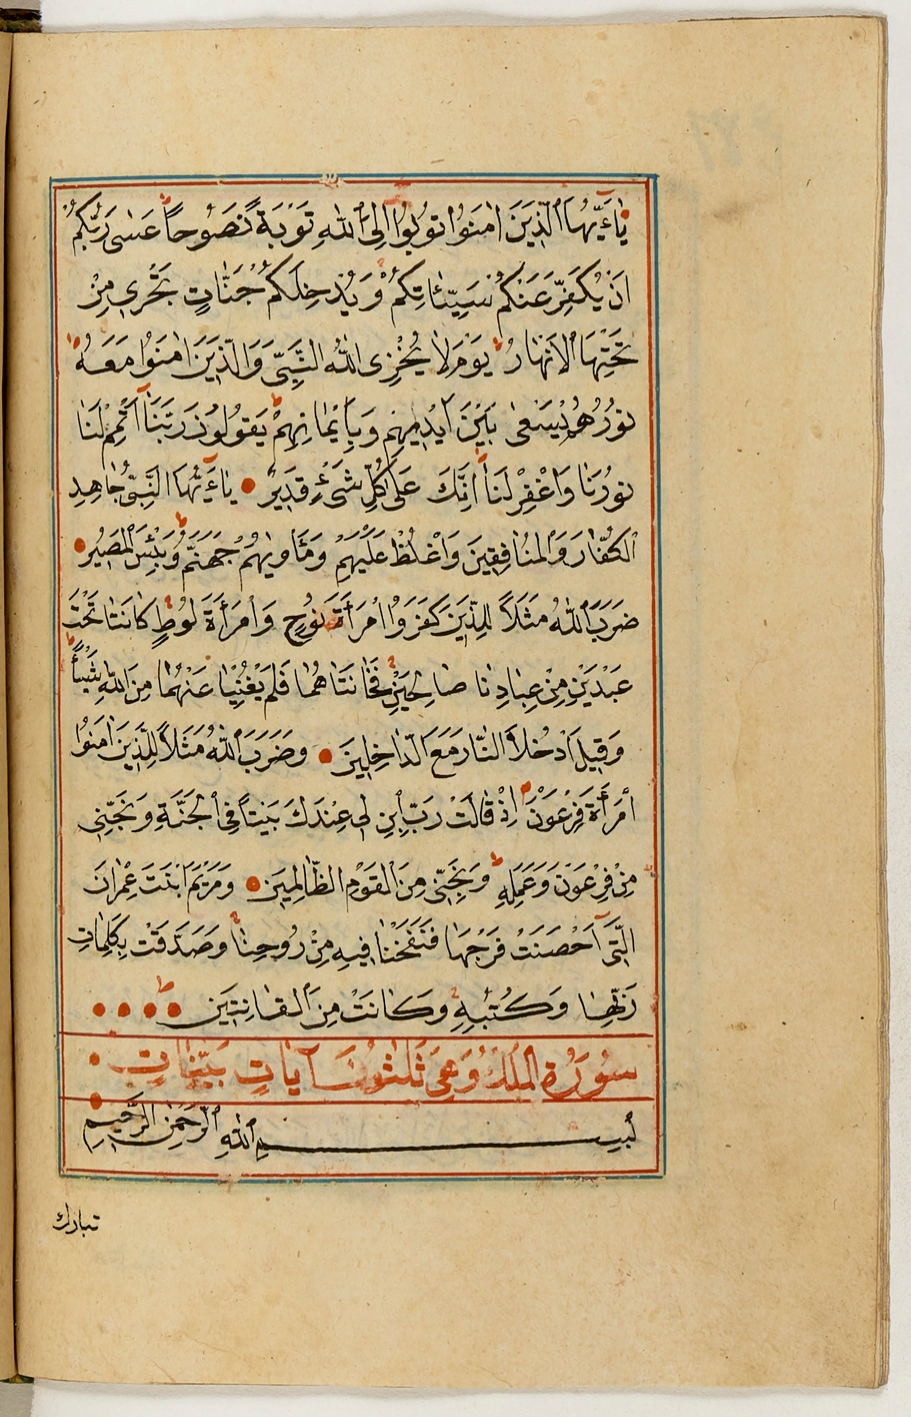 يَاءَيُّهَا الَّذِينَ اٰمَنُوا تُوبُوا اِلَى اللّٰهِ تَوْبَةً نَصُوحًا عَسٰى رَبُّكُمْ
اَنْ يُكَفِّرَ عَنْكُمْ سَيِّئَاتِكُمْ وَيُدْخِلَكُمْ جَنَّاتٍ تَجْرِى مِنْ
تَحْتِهَا الْاَنْهَارُ يَوْمَ لَا يُخْزِى اللّٰهُ النَّبِىَّ وَالَّذِينَ اٰمَنُوا مَعَهُ
نُورُهُمْ يَسْعٰى بَيْنَ اَيْدِيهِمْ وَبِاَيْمَانِهِمْ يَقُولُونَ رَبَّنَا اَتْمِمْ لَنَا
نُورَنَا وَاغْفِرْ لَنَا اِنَّكَ عَلٰى كُلِّ شَىْءٍ قَدِيرٌ يَاءَيُّهَا النَّبِىُّ جَاهِدِ
الْكُفَّارَ وَالْمُنَافِقِينَ وَاغْلُظْ عَلَيْهِمْ وَمَاْوٰيهُمْ جَهَنَّمُ وَبِئْسَ الْمَصِيرُ
ضَرَبَ اللّٰهُ مَثَلًا لِلَّذِينَ كَفَرُوا امْرَاَةَ نُوحٍ وَامْرَاَةَ لُوطٍ كَانَتَا تَحْتَ
عَبْدَيْنِ مِنْ عِبَادِنَا صَالِحَيْنِ فَخَانَتَاهُمَا فَلَمْ يُغْنِيَا عَنْهُمَا مِنَ اللّٰهِ شَيْئًا
وَقِيلَ ادْخُلَا النَّارَ مَعَ الدَّاخِلِينَ وَضَرَبَ اللّٰهُ مَثَلًا لِلَّذِينَ اٰمَنُوا
امْرَاَةَ فِرْعَوْنَ اِذْ قَالَتْ رَبِّ ابْنِ لِى عِنْدَكَ بَيْتًا فِى الْجَنَّةِ وَنَجِّنِى
مِنْ فِرْعَوْنَ وَعَمَلِهِ وَنَجِّنِى مِنَ الْقَوْمِ الظَّالِمِينَ وَمَرْيَمَ ابْنَتَ عِمْرَانَ
الَّتِى اَحْصَنَتْ فَرْجَهَا فَنَفَخْنَا فِيهِ مِنْ رُوحِنَا وَصَدَّقَتْ بِكَلِمَاتِ
رَبِّهَا وَكُتُبِهِ وَكَانَتْ مِنَ الْقَانِتِينَ
سُورَةُ الْمُلْكُ وَهِىَ ثَلٰثُونَ آيَاتٍ بَيِّنَاتٍ
بِسْمِ اللّٰهِ الرَّحْمٰنِ الرَّحِيمِ
تبارك